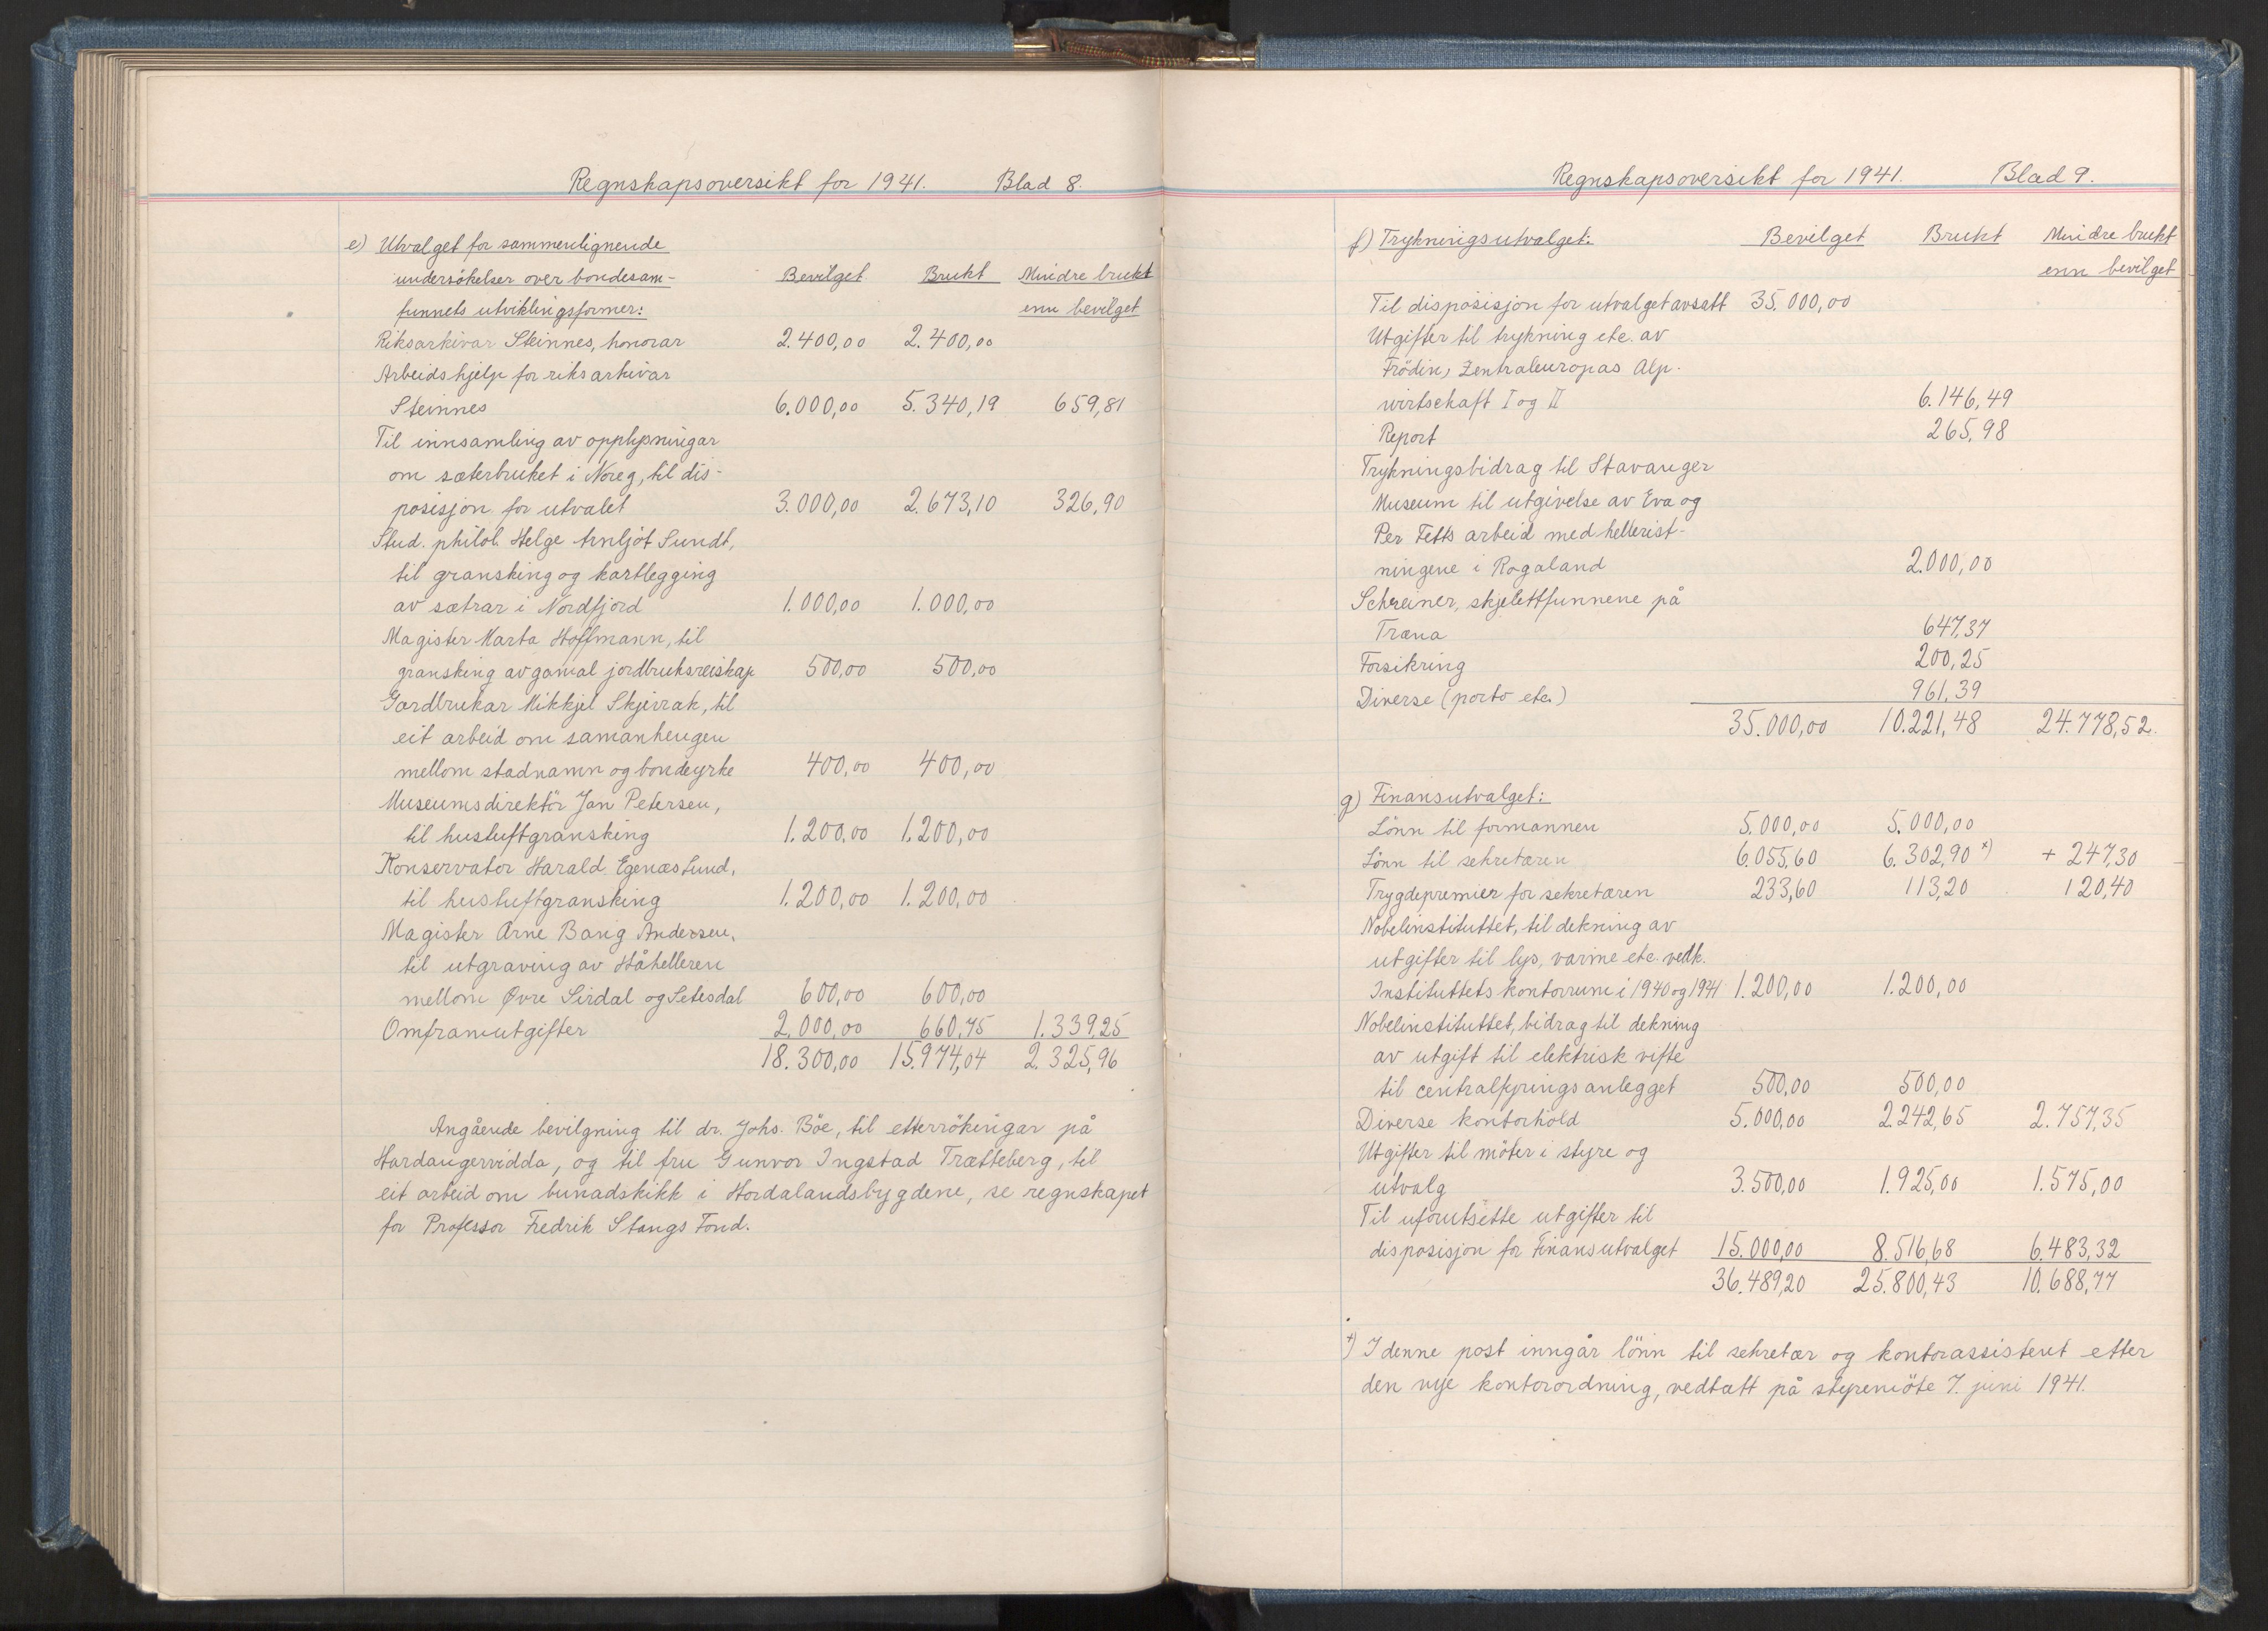 Regnskapsoversikt for 1941. Blad 8.
e) Utvalget for sammenlignende
undersökelser over bondesam- Bevilget Brukt Mindre brukt
funnets utviklingsformer: enn bevilget
Riksarkivar Steinnes, honorar 2.400,00 2.400,00
Arbeidshjelp for riksarkivar
Steinnes 6.000,00 5.340,19 659,81
Til innsamling av opplysningar
om sæterbruket i Noreg, til dis-
posisjon for utvalet 3.000,00 2.673,10 326,90
Stud. philol. Helge Arnljot Sundt,
til gransking og kartlegging
av sætrar i Nordfjord 1.000,00 1.000,00
Magister Marta Hoffmann, til
gransking av gamal jordbruksreiskap 500,00 500,00
Gardbrukar Mikkjel Skjevrak, til
eit arbeid om samanhengen
mellom stadnamn og bondeyrke 400,00 400,00
Museumsdirektör Jan Petersen,
til hustuftgransking 1.200,00 1.200,00
Konservator Harald Egenæs Lund,
til hustuftgransking 1.200,00 1.200,00
Magister Arne Bang Andersen,
til utgraving av Håhelleren
mellom Øvre Sirdal og Setesdal 600,00 600,00
Omframutgifter 2.000,00 660,75 1.339,25
18.300,00 15.974,04 2.325,96
Angående bevilgning til dr. Johs. Böe, til etterrökingar på
Hardangervidda, og til fru Gunvor Ingstad Trætteberg, til
eit arbeid om bunadskikk i Hordalandsbygdene, se regnskapet
for Professor Fredrik Stangs Fond.
Regnskapsoversikt for 1941. Blad 9.
f) Trykningsutvalget: Bevilget Brukt Mindre brukt
enn bevilget
Til disposisjon for utvalget avsatt 35.000,00
Utgifter til trykning etc. av
Frödin, Zentraleuropas Alp-
wirtschaft I og II 6.146,49
Report 265,98
Trykningsbidrag til Stavanger
Museum til utgivelse av Eva og
Per Fetts arbeid med hellerist-
ningene i Rogaland 2.000,00
Schreiner, skjelettfunnene på
Træna 647,37
Forsikring 200,25
Diverse (porto etc.) 961,39
35.000,00 10.221,48 24.778,52.
g) Finansutvalget:
Lönn til formannen 5.000,00 5.000,00
Lönn til sekretæren 6.055,60 6.302,90 +) + 247,30
Trygdepremier for sekretæren 233,60 113,20 120,40
Nobelinstituttet, til dekning av
utgifter til lys, varme etc. vedk.
Instituttets kontorrum i 1940 og 1941 1.200,00 1.200,00
Nobelinstituttet, bidrag til dekning
av utgift til elektrisk vifte
til centralfyringsanlegget 500,00 500,00
Diverse kontorhold 5.000,00 2.242,65 2.757,35
Utgifter til möter i styre og
utvalg 3.500,00 1.925,00 1.575,00
Til uforutsette utgifter til
disposisjon for Finansutvalget 15.000,00 8.516,68 6.483,32
36.489,20 25.800,43 10.688,77
+) I denne post inngår lönn til sekretær og kontorassistent etter
den nye kontorordning, vedtatt på styremöte 7. juni 1941.